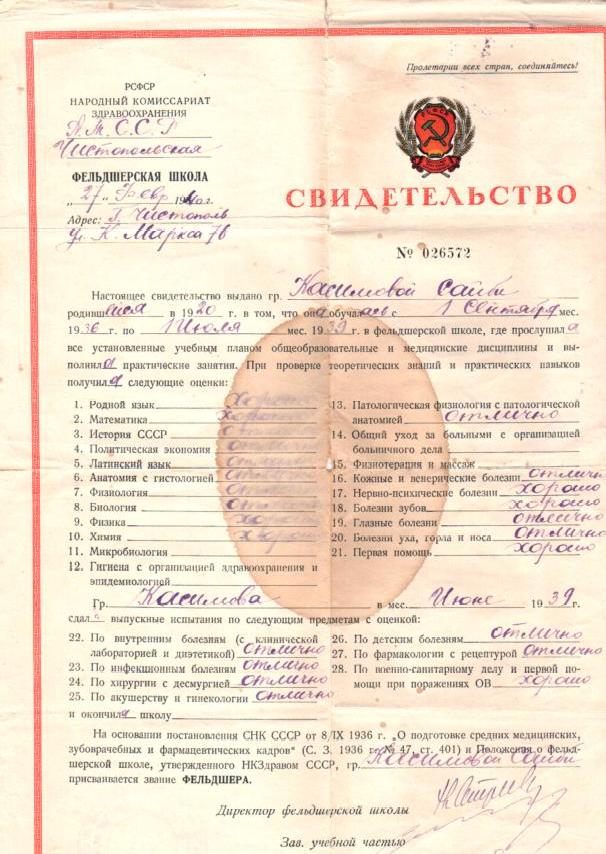 Пролетарии всех стран, соединяйтесь!
РСФСР
НАРОДНЫЙ КОМИССАРИАТ
ЗДРАВООХРАНЕНИЯ
Чистопольская
ФЕЛЬДШЕРСКАЯ ШКОЛА
„27" Февр 1940 г.
Адрес: г. Чистополь
ул. К. Маркса 76
СВИДЕТЕЛЬСТВО
№ 026572
Настоящее свидетельство выдано гр. Касимовой
родившейся в 1920 г. в том, что она обучалась с 1 Сентября мес.
1936 г. по 1 Июля мес. 1939 г. в фельдшерской школе, где прослушала
все установленные учебным планом общеобразовательные и медицинские дисциплины и вы-
полнила практические занятия. При проверке теоретических знаний и практических навыков
получила следующие оценки:
1. Родной язык хорошо
2. Математика хорошо
3. История СССР
4. Политическая экономия
5. Латинский язык
6. Анатомия с гистологией
7. Физиология
8. Биология
9. Физика
10. Химия хорошо
11. Микробиология
12. Гигиена с организацией здравоохранения и
эпидемиологией
13. Патологическая физиология с патологической
анатомией отлично
14. Общий уход за больными с организацией
больничного дела
15. Физиотерапия и массаж
16. Кожные и венерические болезни отлично
17. Нервно-психические болезни хорошо
18. Болезни зубов хорошо
19. Глазные болезни отлично
20. Болезни уха, горла и носа отлично
21. Первая помощь хорошо
Гр. Касимова в мес. Июне 1939 г.
сдала выпускные испытания по следующим предметам с оценкой:
22. По внутренним болезням (с клинической
лабораторией и диэтетикой) отлично
23. По инфекционным болезням отлично
24. По хирургии с десмургией отлично
25. По акушерству и гинекологии отлично
26. По детским болезням отлично
27. По фармакологии с рецептурой отлично
28. По военно-санитарному делу и первой по-
мощи при поражениях ОВ хорошо
и окончила школу
На основании постановления СНК СССР от 8/IX 1936 г. „О подготовке средних медицинских,
зубоврачебных и фармацевтических кадров" (С. З. 1936 г. № 47, ст. 401) и Положения о фельд-
шерской школе, утвержденного НКЗдравом СССР, гр. Касимовой
присваивается звание ФЕЛЬДШЕРА.
Директор фельдшерской школы
Зав. учебной частью